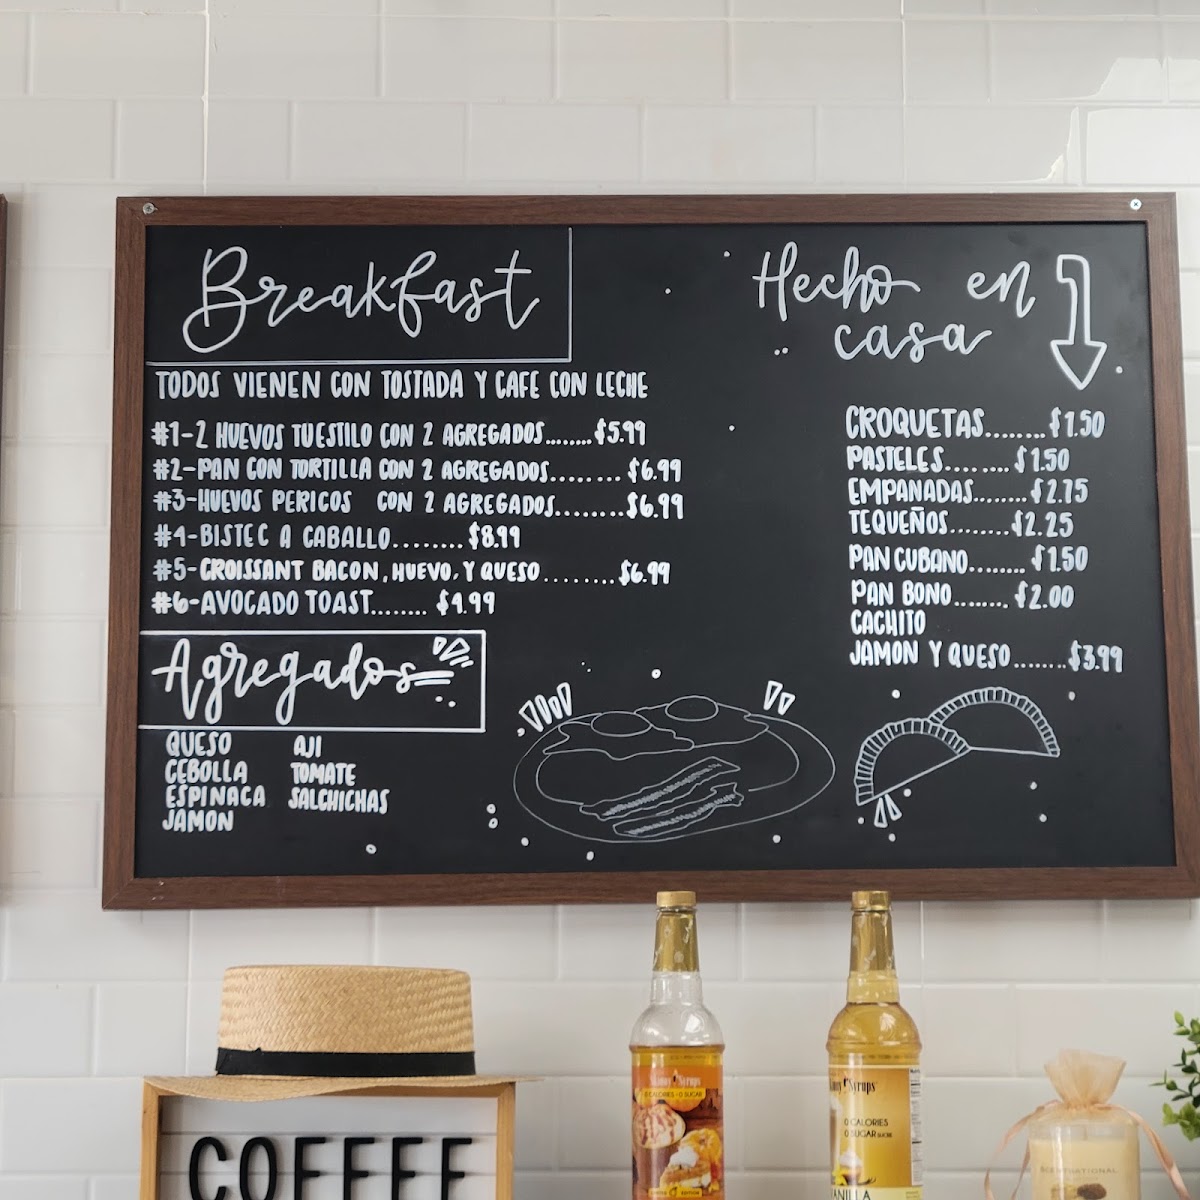 Breakfast
TODOS VIENEN CON TOSTADA Y CAFE CON LECHE
#1-2 HUEVOS TUESTILO CON 2 AGREGADOS........$5.99
#2-PAN CON TORTILLA CON 2 AGREGADOS........$6.99
#3-HUEVOS PERICOS CON 2 AGREGADOS........$6.99
#4-BISTEC A CABALLO........$8.99
#5-CROISSANT BACON, HUEVO, Y QUESO........$6.99
#6-AVOCADO TOAST.......$4.99
Agregados
QUESO
CEBOLLA
ESPINACA
JAMON
AJI
TOMATE
SALCHICHAS
Hecho en
casa
CROQUETAS........$1.50
PASTELES........$1.50
EMPANADAS.......$2.75
TEQUEÑOS.......$2.25
PAN CUBANO........$1.50
PAN BONO.......$2.00
CACHITO
JAMON Y QUESO.......$3.99
COFFEE
Skinny Syrups
0 CALORIES • 0 SUGAR
EDITION
Syrups
0 CALORIES
0 SUGAR
VANILLA
SCENTSATIONAL